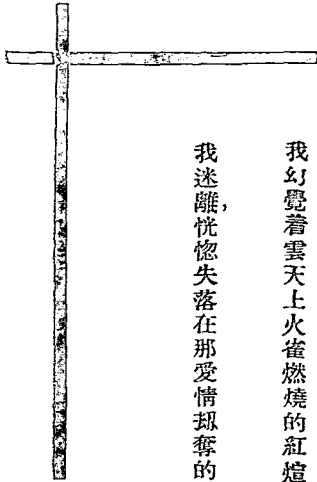 我幻覺着雲天上火雀燃燒的紅煊
我迷離，恍惚失落在那愛情刼奪的